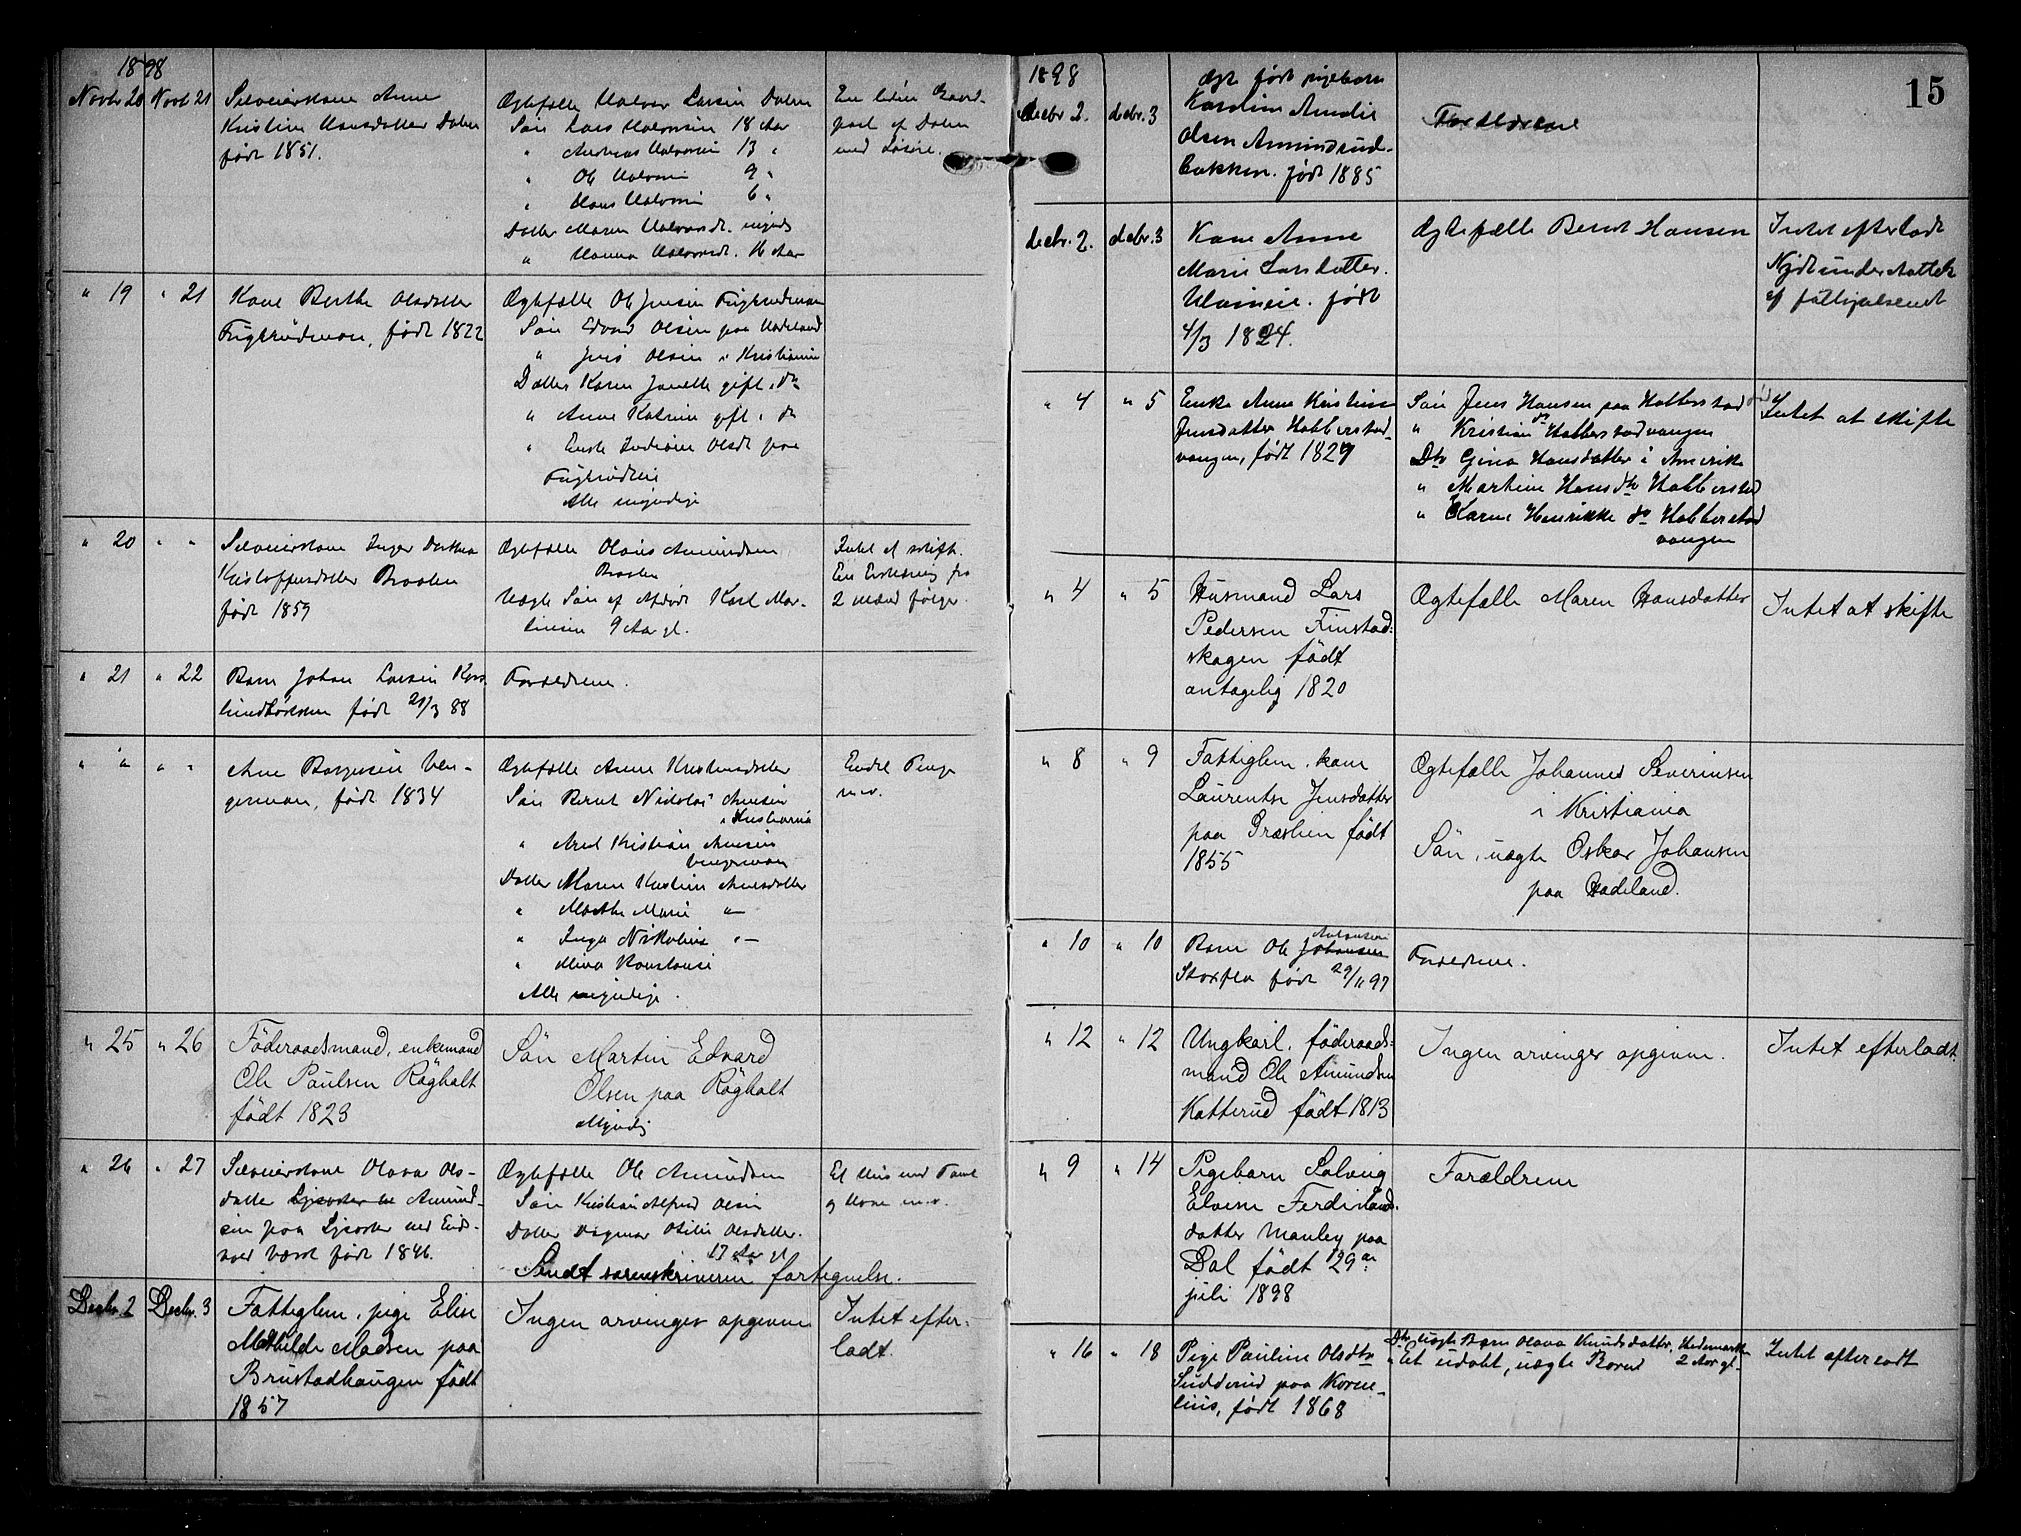 1898
Novbr 20 Novb 21 Selveierkone Anne
Kristine Hansdatter Dalen
født 1851.
Ægtefælle Halvor Larsen Dalen
Søn Lars Halvorsen 18 Aar
" Andreas Halvorsen 13 "
" Ole Halvorsen 9 "
" Hans Halvorsen 6 "
Datter Maren Halvorsdt. myndig
" Hanna Halvorsdt. 16 Aar
En liden Gaard-
part af Dalen
med Løsøre.
" 19 " 21 Kone Berthe Olsdatter
født 1822
Ægtefælle Ole Jensen
Søn Edvard Olsen paa Hadeland
" Jens Olsen i Kristiania
Datter Karen Janette gift i do
" Anne Katrine gift i do
" Enke Olsdt paa
Alle myndige
" 20 " " Selveierkone Inger Dorthea
Kristoffersdatter Braaten
født 1859
Ægtefælle Olaus Amundsen
Braaten
Uægte Søn af Afdøde Karl Mar-
tinsen 9 Aar gl.
Intet at skifte.
En Erklæring fra
2 Mænd følger.
" 21 " 22 Barn Johan Larsen
født 21/3 88
Forældrene.
" " " " Arne Børgersen Ven-
germoen, født 1834
Ægtefælle Anne Kristensdatter
Søn Bernt Nicolai Arnesen
i Kristiania
" Axel Kristian Arnesen
Vengermoen
Datter Maren Kristine Arnesdatter
" Marthe Marie "—
" Inga Nikoline "—
" Mina Konstanse
Alle myndige.
Endel Penge
m.v.
" 25 " 26 Föderaadsmand, enkemand
Ole Paulsen Råholt
födt 1823
Sön Martin Edvard
Olsen paa Råholt
Myndig
" 26 " 27 Selveierkone Olava Ols-
datter Amund-
sen paa ved Eids-
vold Værk født 1846.
Ægtefælle Ole Amundsen
Søn Kristian Alfred Olsen
Datter Dagmar Otilie Olsdatter.
17 Aar gl
Sendt sorenskriveren fortegnelse.
Et Hus med Tomt
og Have m.v.
Decbr. 2 Decbr. 3 Fattiglem, pige Elise
Mathilde Madsen paa
Brustadhaugen födt
1857
Ingen arvinger opgivne
Intet efter-
ladt.
15
1898
decbr 2. decbr. 3 Ægte født pigebarn
Karoline Amalie
Olsen Amundrud-
bakken. født 1885
Forældrene
decbr. 2. decbr. 3 Kone Anne
Marie Larsdatter.
født
4/3 1824.
Ægtefælle Bernt Hansen
Intet efterladt
Nydt understøttelse
af fattigvæsenet
" 4 " 5 Enke Anne Kristine
Jensdatter Habberstad-
vangen, født 1829
Søn Jens Hansen paa Habberstad
" Kristian do Habberstadvangen
Dtr Gina Hansdatter i Amerika
" Martine Hansdtr Habberstad
" Karen Henrikke do Habberstad
vangen
Intet at skifte
" 4 " 5 Husmand Lars
Pedersen Finstad-
skogen födt
antagelig 1820
Ægtefælle Maren Hansdatter
Intet at skifte
" 8 " 9 Fattiglem, kone
Laurentse Jensdatter
paa Græslien födt
1855
Ægtefælle Johannes Severinsen
i Kristiania
Sön, uægte Oskar Johansen
paa Hadeland.
" 10 " 10 Barn Ole Johansen
født 29/11 97
Forældrene.
" 12 " 12 Ungkarl, föderaads-
mand Ole Amundsen
Katterud födt 1813
Ingen arvinger opgivne.
Intet efterladt.
" 9 " 14 Pigebarn Solveig
Elvine Ferdinand-
datter Manley paa
Dal födt 29de
juli 1898
Forældrene
" 16 " 18 Pige Pauline Olsdtr
Sudderud paa Korne-
lius, født 1868
Dtr uægte Barn Olava Knudsdatter, Hedemarken
2 Aar gl.
" Et udøbt, uægte Barn
Intet efterladt